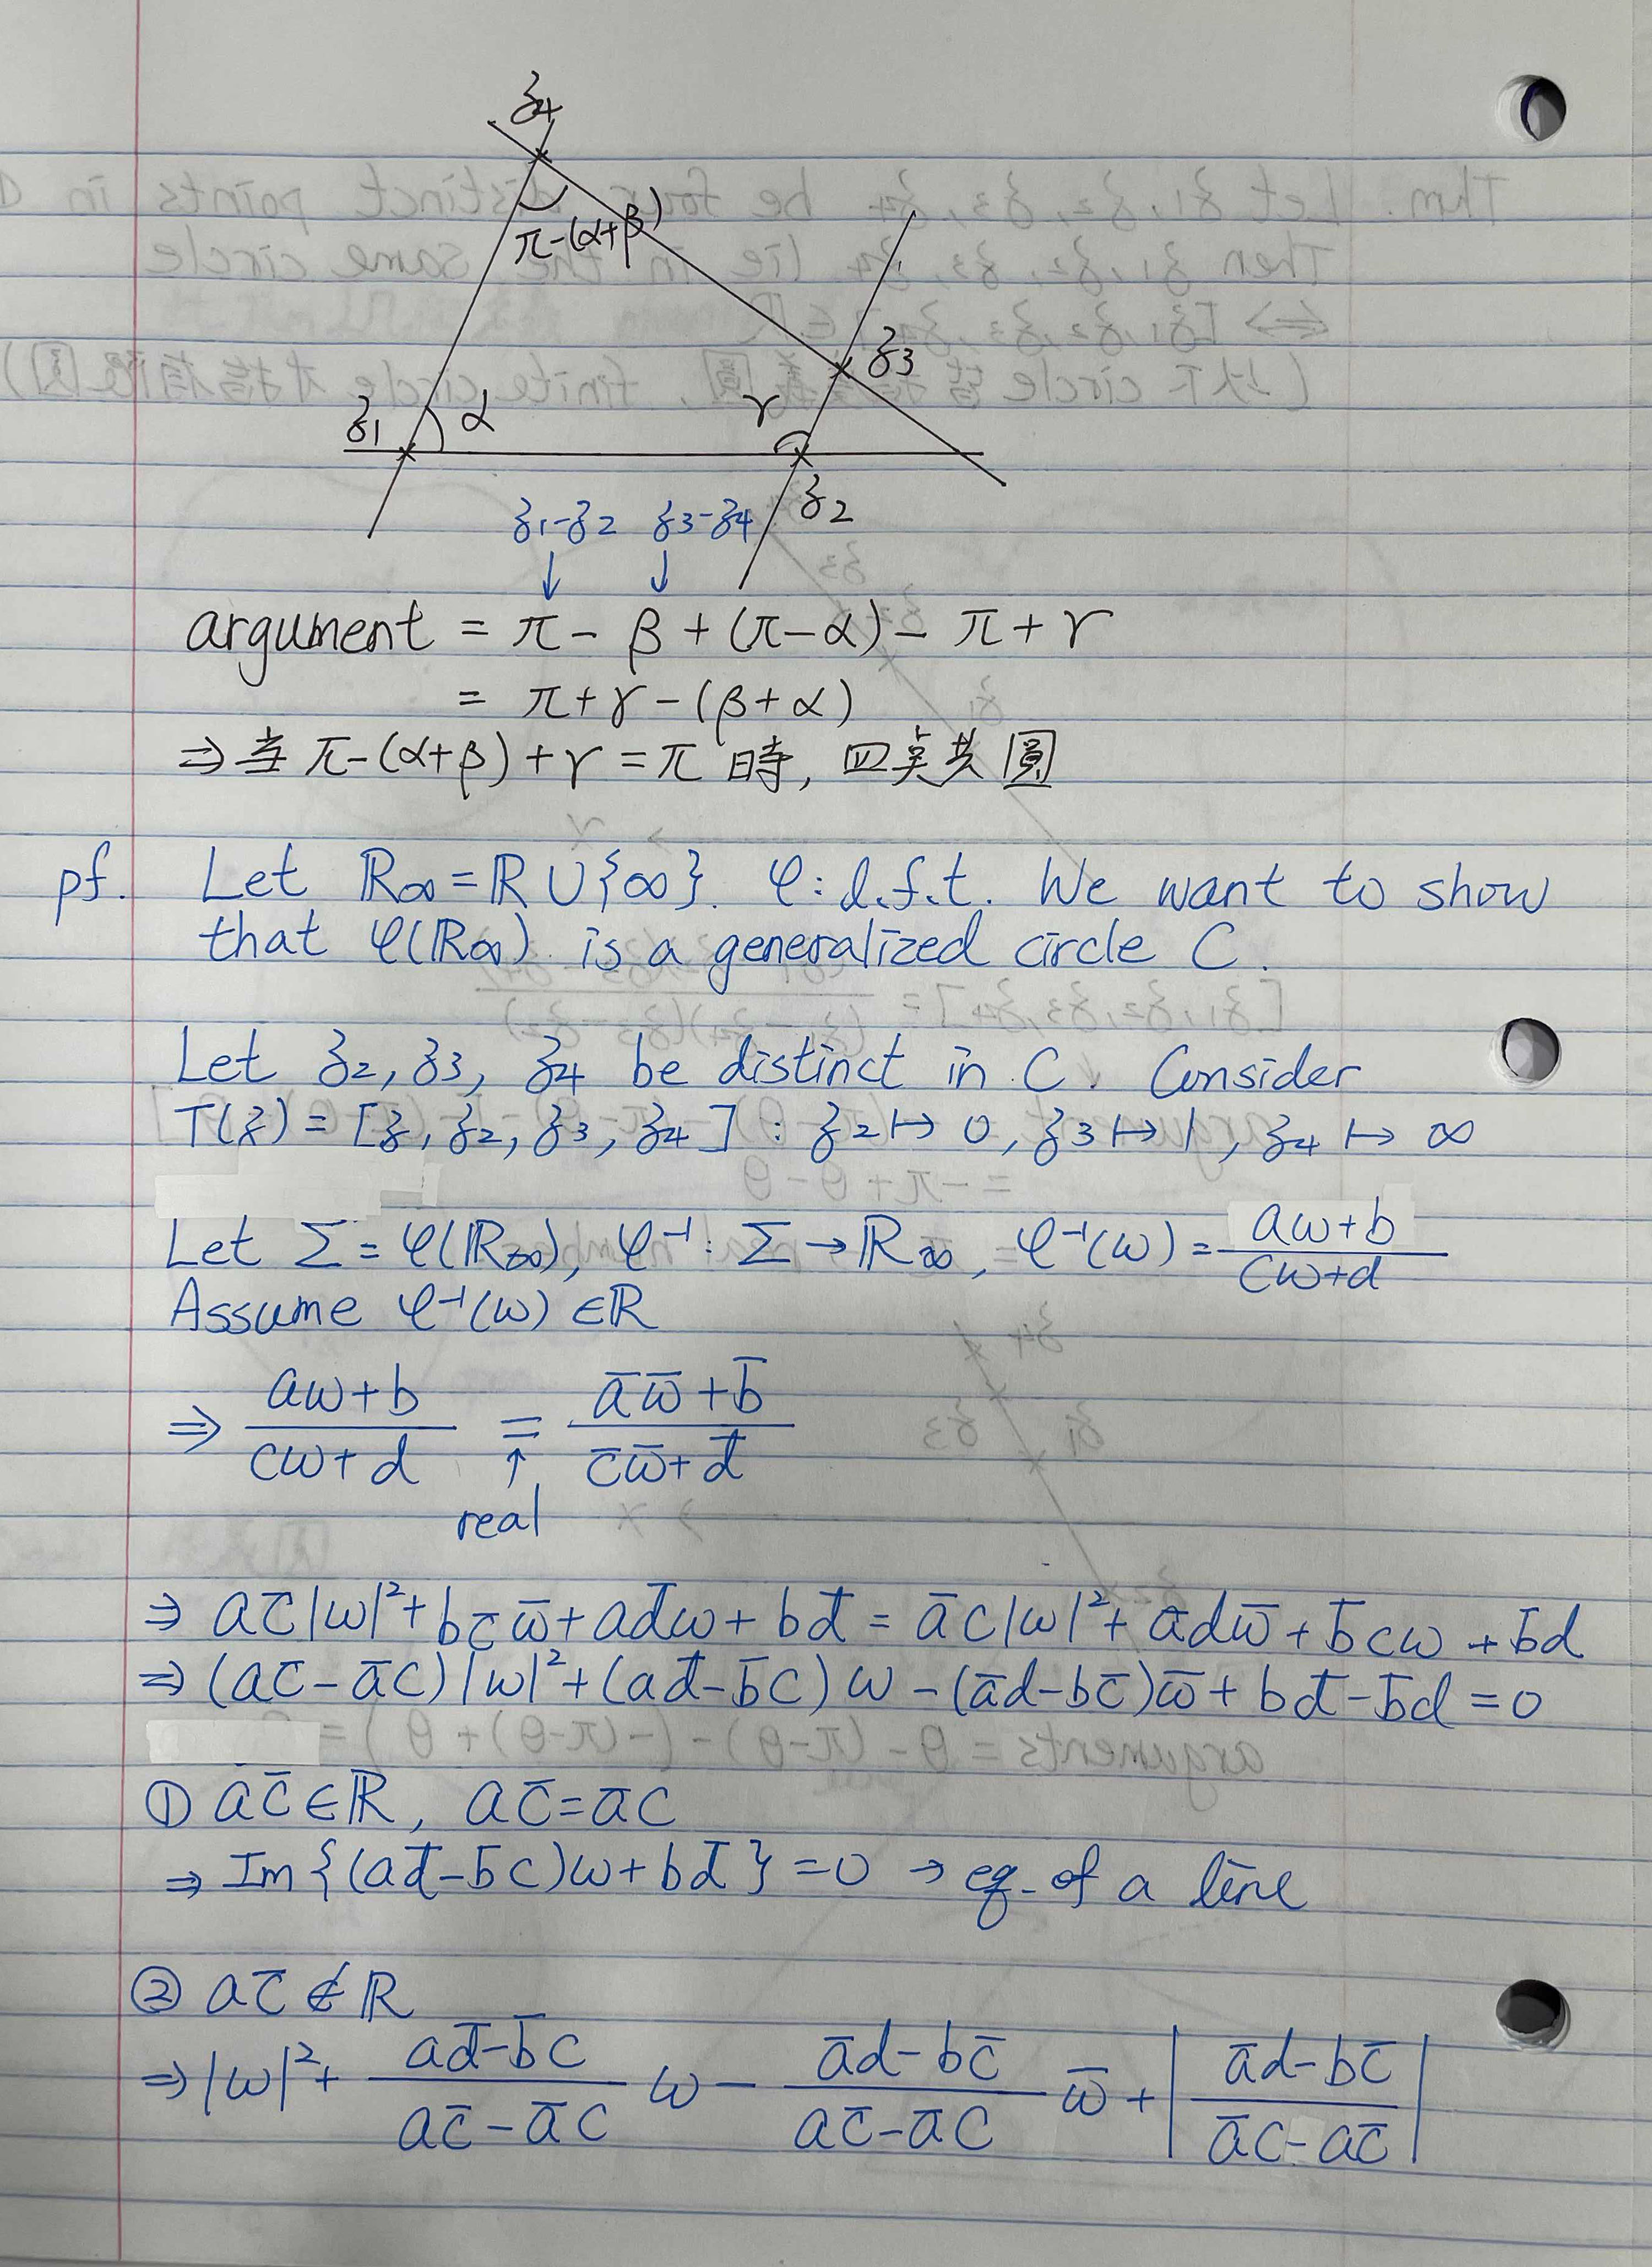 z4
π-(α+β)
z3
z1 α γ
z2
z1-z2 z3-z4
↓ ↓
argument = π - β + (π-α) - π + γ
= π + γ - (β + α)
⇒ 当 π-(α+β) + γ = π 時, 四点共圓
pf. Let ℝ∞ = ℝ ∪ {∞}. φ: l.f.t. We want to show
that φ(ℝ∞) is a generalized circle C.
Let z2, z3, z4 be distinct in C. Consider
T(z) = [z, z2, z3, z4] : z2 ↦ 0, z3 ↦ 1, z4 ↦ ∞
Let Σ = φ(ℝ∞), φ⁻¹: Σ → ℝ∞, φ⁻¹(ω) = (aω+b)/(cω+d)
Assume φ⁻¹(ω) ∈ ℝ
⇒ (aω+b)/(cω+d) = (a̅ω̅+b̅)/(c̅ω̅+d̅)
↑
real
⇒ ac̅|ω|²+bc̅ω̅+ad̅ω+bd̅ = a̅c|ω|²+a̅dω̅+b̅cω+b̅d
⇒ (ac̅-a̅c)|ω|²+(ad̅-b̅c)ω-(a̅d-bc̅)ω̅+bd̅-b̅d=0
① ac̅∈ℝ, ac̅=a̅c
⇒ Im{(ad̅-b̅c)ω+bd̅}=0 → eq. of a line
② ac̅∉ℝ
⇒ |ω|²+ (ad̅-b̅c)/(ac̅-a̅c) ω - (a̅d-bc̅)/(ac̅-a̅c) ω̅ + |(a̅d-bc̅)/(a̅c-ac̅)|